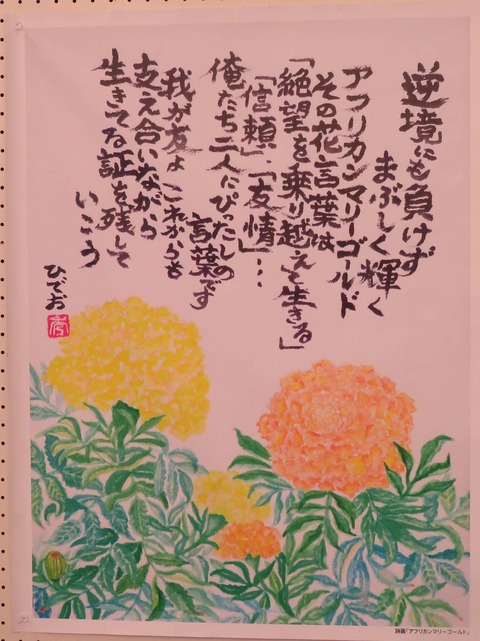 逆境にも負けず
まぶしく輝く
アフリカンマリーゴールド
その花言葉は
「絶望を乗り越えて生きる」
「信頼」「友情」…
俺たち二人にぴったしの
言葉です
我が友よ これからも
支え合いながら
生きてる証を残して
いこう
ひでお
秀
詩画「アフリカンマリーゴールド」